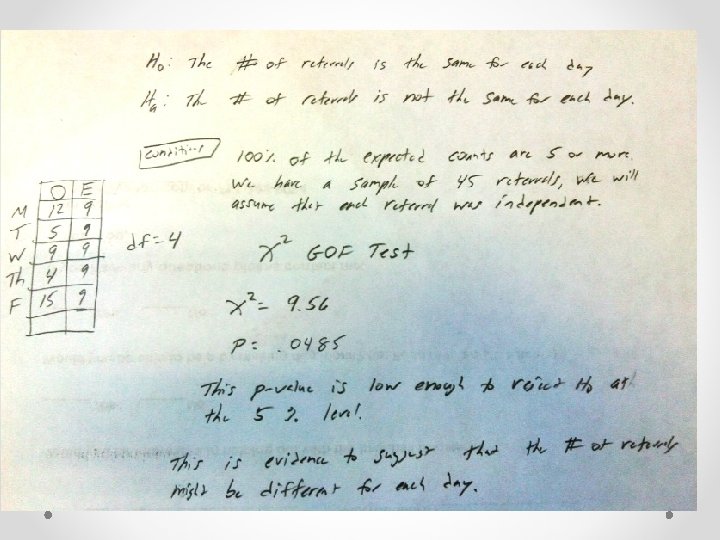 Ho: The # of referrals is the same for each day
Ha: Th # of referrals is not the same for each day.
Conditions
100% of the expected counts are 5 or more.
We have a sample of 45 referrals, we will
assume that each referral was independent.
O E
M 12 9
T 5 9
W 9 9
Th 4 9
F 15 9
df=4
χ² GOF Test
χ²= 9.56
P= .0485
This p-value is low enough to reject Ho at
the 5 % level.
This is evidence to suggest that the # of referrals
might be different for each day.